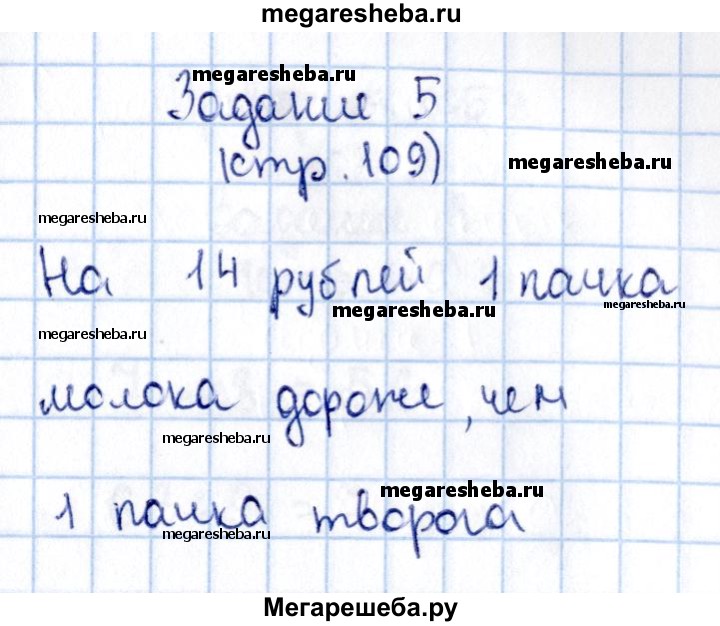 megaresheba.ru
megaresheba.ru
Задание 5
(стр. 109)
megaresheba.ru
megaresheba.ru
На 14 рублей 1 пачка
megaresheba.ru
megaresheba.ru
megaresheba.ru
молока дороже, чем
megaresheba.ru
megaresheba.ru
1 пачка творога
megaresheba.ru
Мегарешеба.ру